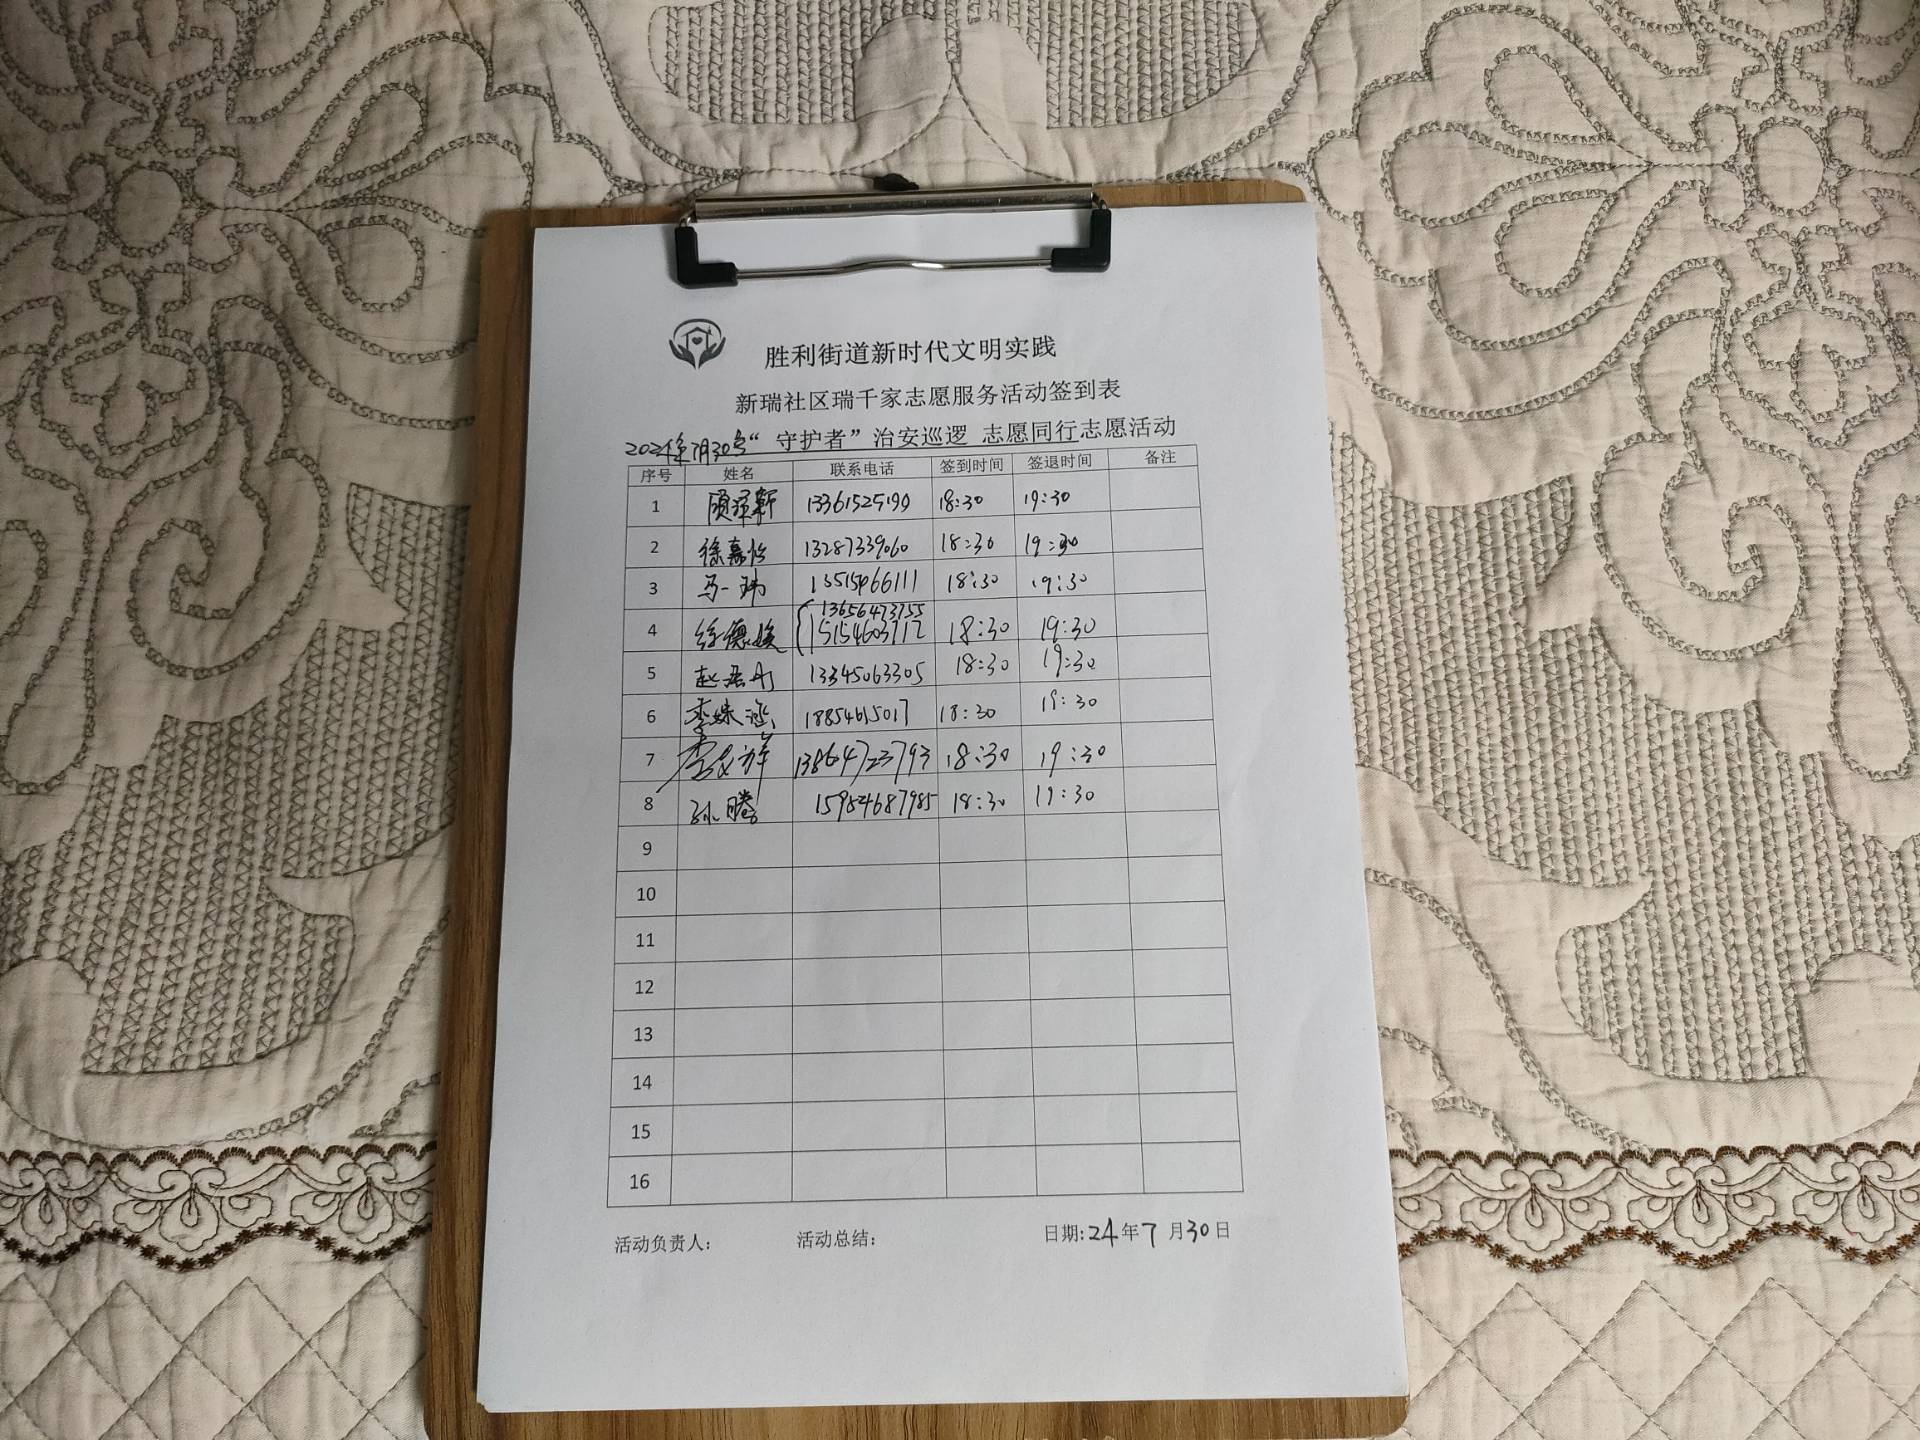 胜利街道新时代文明实践
新瑞社区瑞千家志愿服务活动签到表
2024年7月30号“守护者”治安巡逻 志愿同行志愿活动
序号 姓名 联系电话 签到时间 签退时间 备注
1 顾泽新 13361525190 18:30 19:30
2 徐嘉怡 13287339060 18:30 19:30
3 马一玮 18:30 19:30
13656473755
4 徐德 15154603712 18:30 19:30
5 赵 13345063305 18:30 19:30
6 李姝涵 18854615017 18:30 19:30
7 李 祥 13864723793 18:30 19:30
8 孙腾 15954687985 18:30 19:30
9
10
11
12
13
14
15
16
活动负责人: 活动总结: 日期:24年7月30日